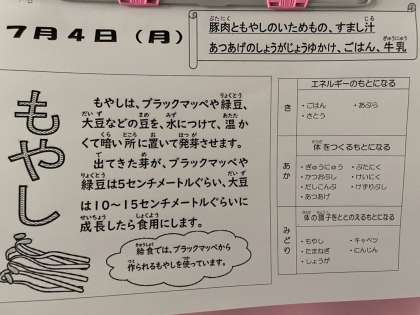 7月4日（月）
豚肉ともやしのいためもの、すまし汁
あつあげのしょうがじょうゆかけ、ごはん、牛乳
もやし
もやしは、ブラックマッペや緑豆、
大豆などの豆を、水につけて、温か
くて暗い所に置いて発芽させます。
出てきた芽が、ブラックマッペや
緑豆は5センチメートルぐらい、大豆
は10～15センチメートルぐらいに
成長したら食用にします。
給食では、ブラックマッペから
作られるもやしを使っています。
き
エネルギーのもとになる
・ごはん ・あぶら
・さとう
あか
体をつくるもとになる
・ぎゅうにゅう ・ぶたにく
・かつおぶし ・けいにく
・だしこんぶ ・けずりぶし
・あつあげ
みどり
体の調子をととのえるもとになる
・もやし ・キャベツ
・たまねぎ ・にんじん
・しょうが